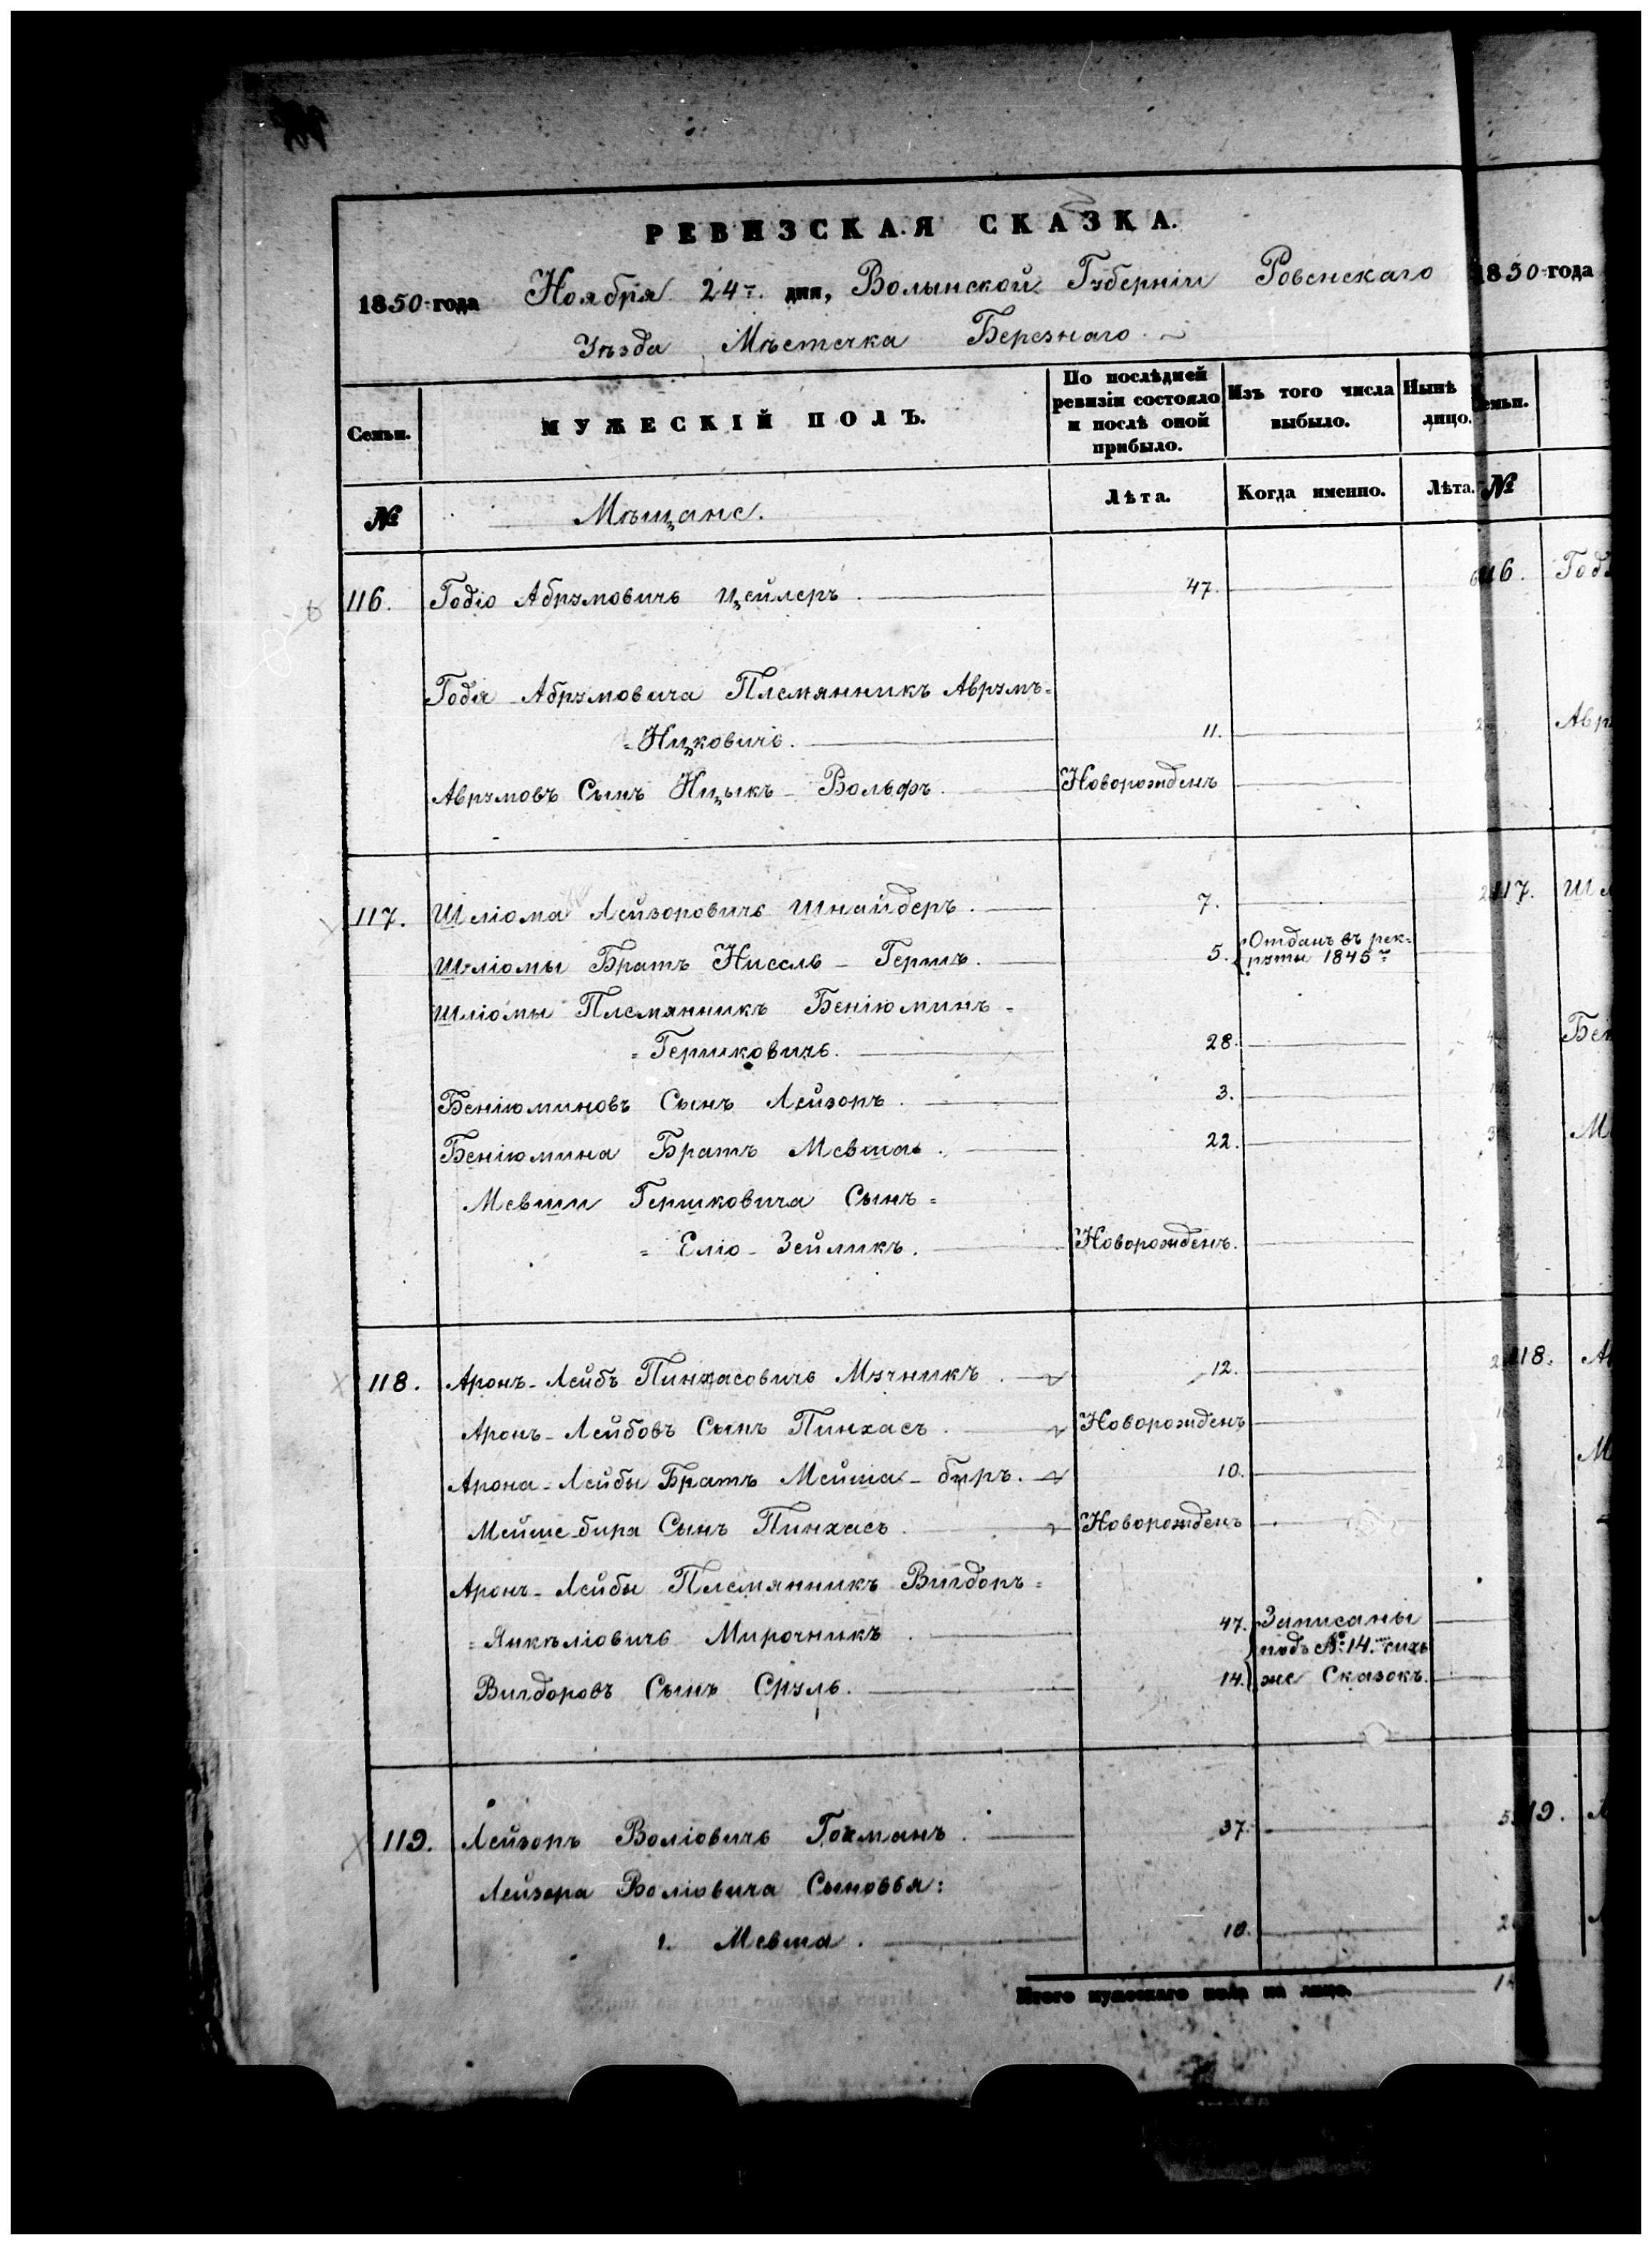 РЕВИЗСКАЯ СКАЗКА.
1850 года Ноября 24 г. дня, Волынской Губерніи Ровенскаго
1850 года
Уѣзда Мѣстечка Березнаго
Семьи.
МУЖЕСКІЙ ПОЛЪ.
По послѣдней ревизіи состояло и послѣ оной прибыло.
Изъ того числа выбыло.
Нынѣ лицо.
Семьи.
№
Мѣщане.
Лѣта.
Когда именно.
Лѣта.
№
116. Годіо Абрумовичъ Цейлеръ 47. 116.
Годя Абрумовича Племянникъ Аврумъ=
=Ицковичъ. 11.
Аврумовъ Сынъ Ицыкъ-Вольфъ. Новорожденъ
117. Шліома Лейзоровичъ Шнайдеръ. 7. 117.
Шліомы Братъ Нисель-Гершъ. 5. Отданъ въ рек=
руты 1845 г.
Шліомы Племянникъ Беніюминъ=
=Гершковичъ. 28.
Беніюминовъ Сынъ Лейзоръ. 3.
Беніюмина Братъ Мевша. 22.
Мевши Гершковича Сынъ=
=Еліо-Зейликъ. Новорожденъ.
118. Аронъ-Лейбъ Пинхасовичъ Мучникъ. 12. 118.
Аронъ-Лейбовъ Сынъ Пинхасъ. Новорожденъ
Арона-Лейбы Братъ Мейша-биръ. 10.
Мейше-бира Сынъ Пинхасъ. Новорожденъ
Аронъ-Лейбы Племянникъ Вигдоръ=
=Янкѣліовичъ Мирочникъ 47. Записаны
подъ №: 14. сихъ
Вигдоровъ Сынъ Сруль. 14. же Сказокъ.
119. Лейзоръ Воліовичъ Гохманъ. 37. 119.
Лейзора Воліовича Сыновья:
1. Мевша. 10.
Итого мужескаго пола на лицо.